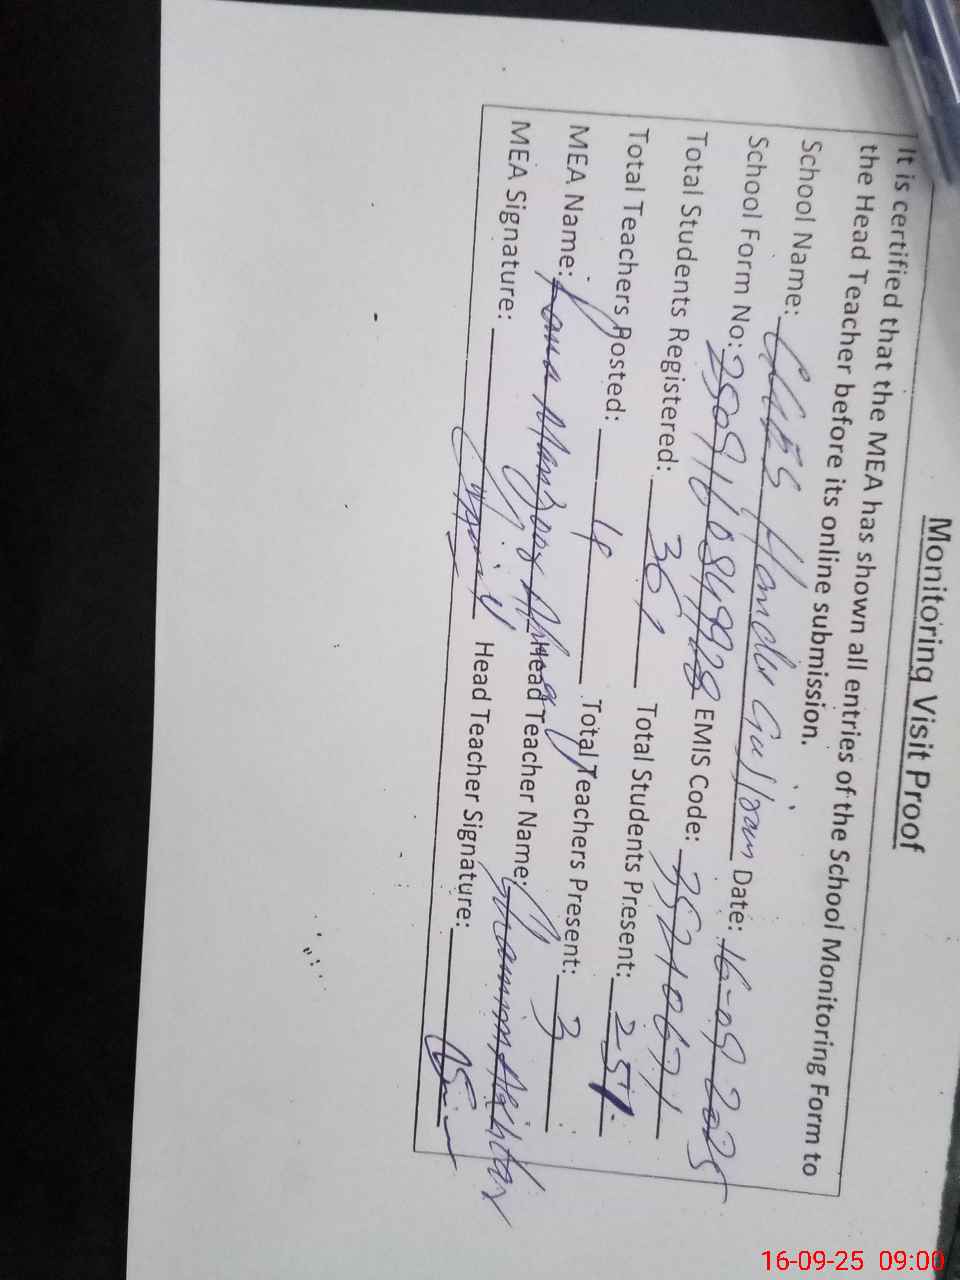 Monitoring Visit Proof
It is certified that the MEA has shown all entries of the School Monitoring Form to
the Head Teacher before its online submission.
School Name: Handu Date: 16-09-2025
School Form No: EMIS Code:
Total Students Registered: 361 Total Students Present: 251
Total Teachers Posted: Total Teachers Present: 3
MEA Name: Rana Manzoor Ahmad Head Teacher Name: Akhtar
MEA Signature: Head Teacher Signature:
16-09-25 09:00